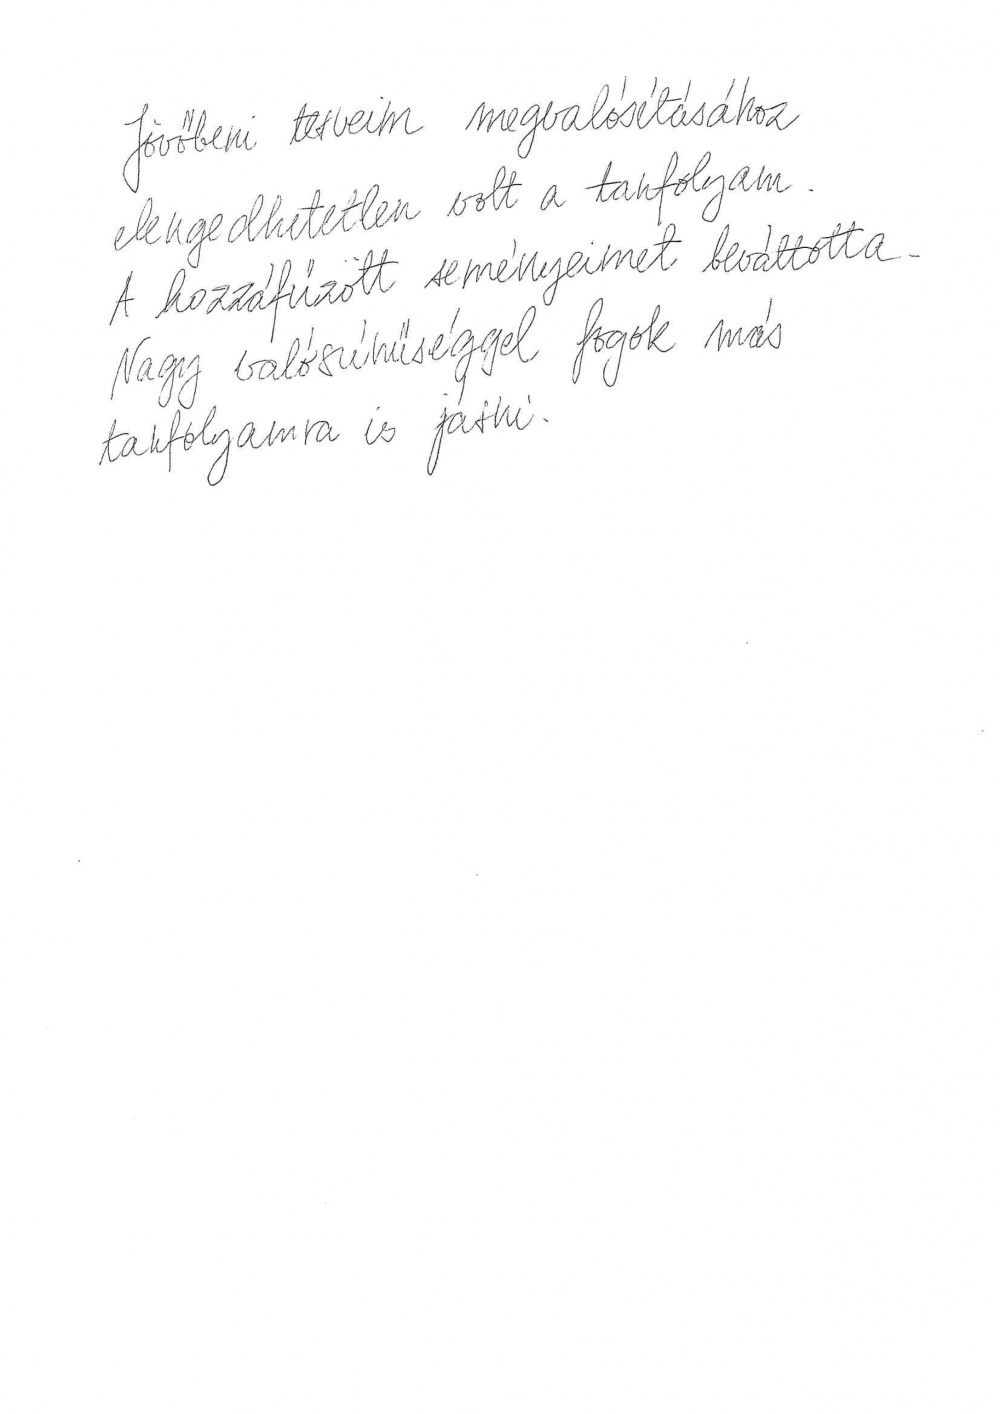 Jövőbeni terveim megvalósításához
elengedhetetlen volt a tanfolyam.
A hozzáfűzött seményeimet beváltotta.
Nagy valószínűséggel fogok más
tanfolyamra is járni.